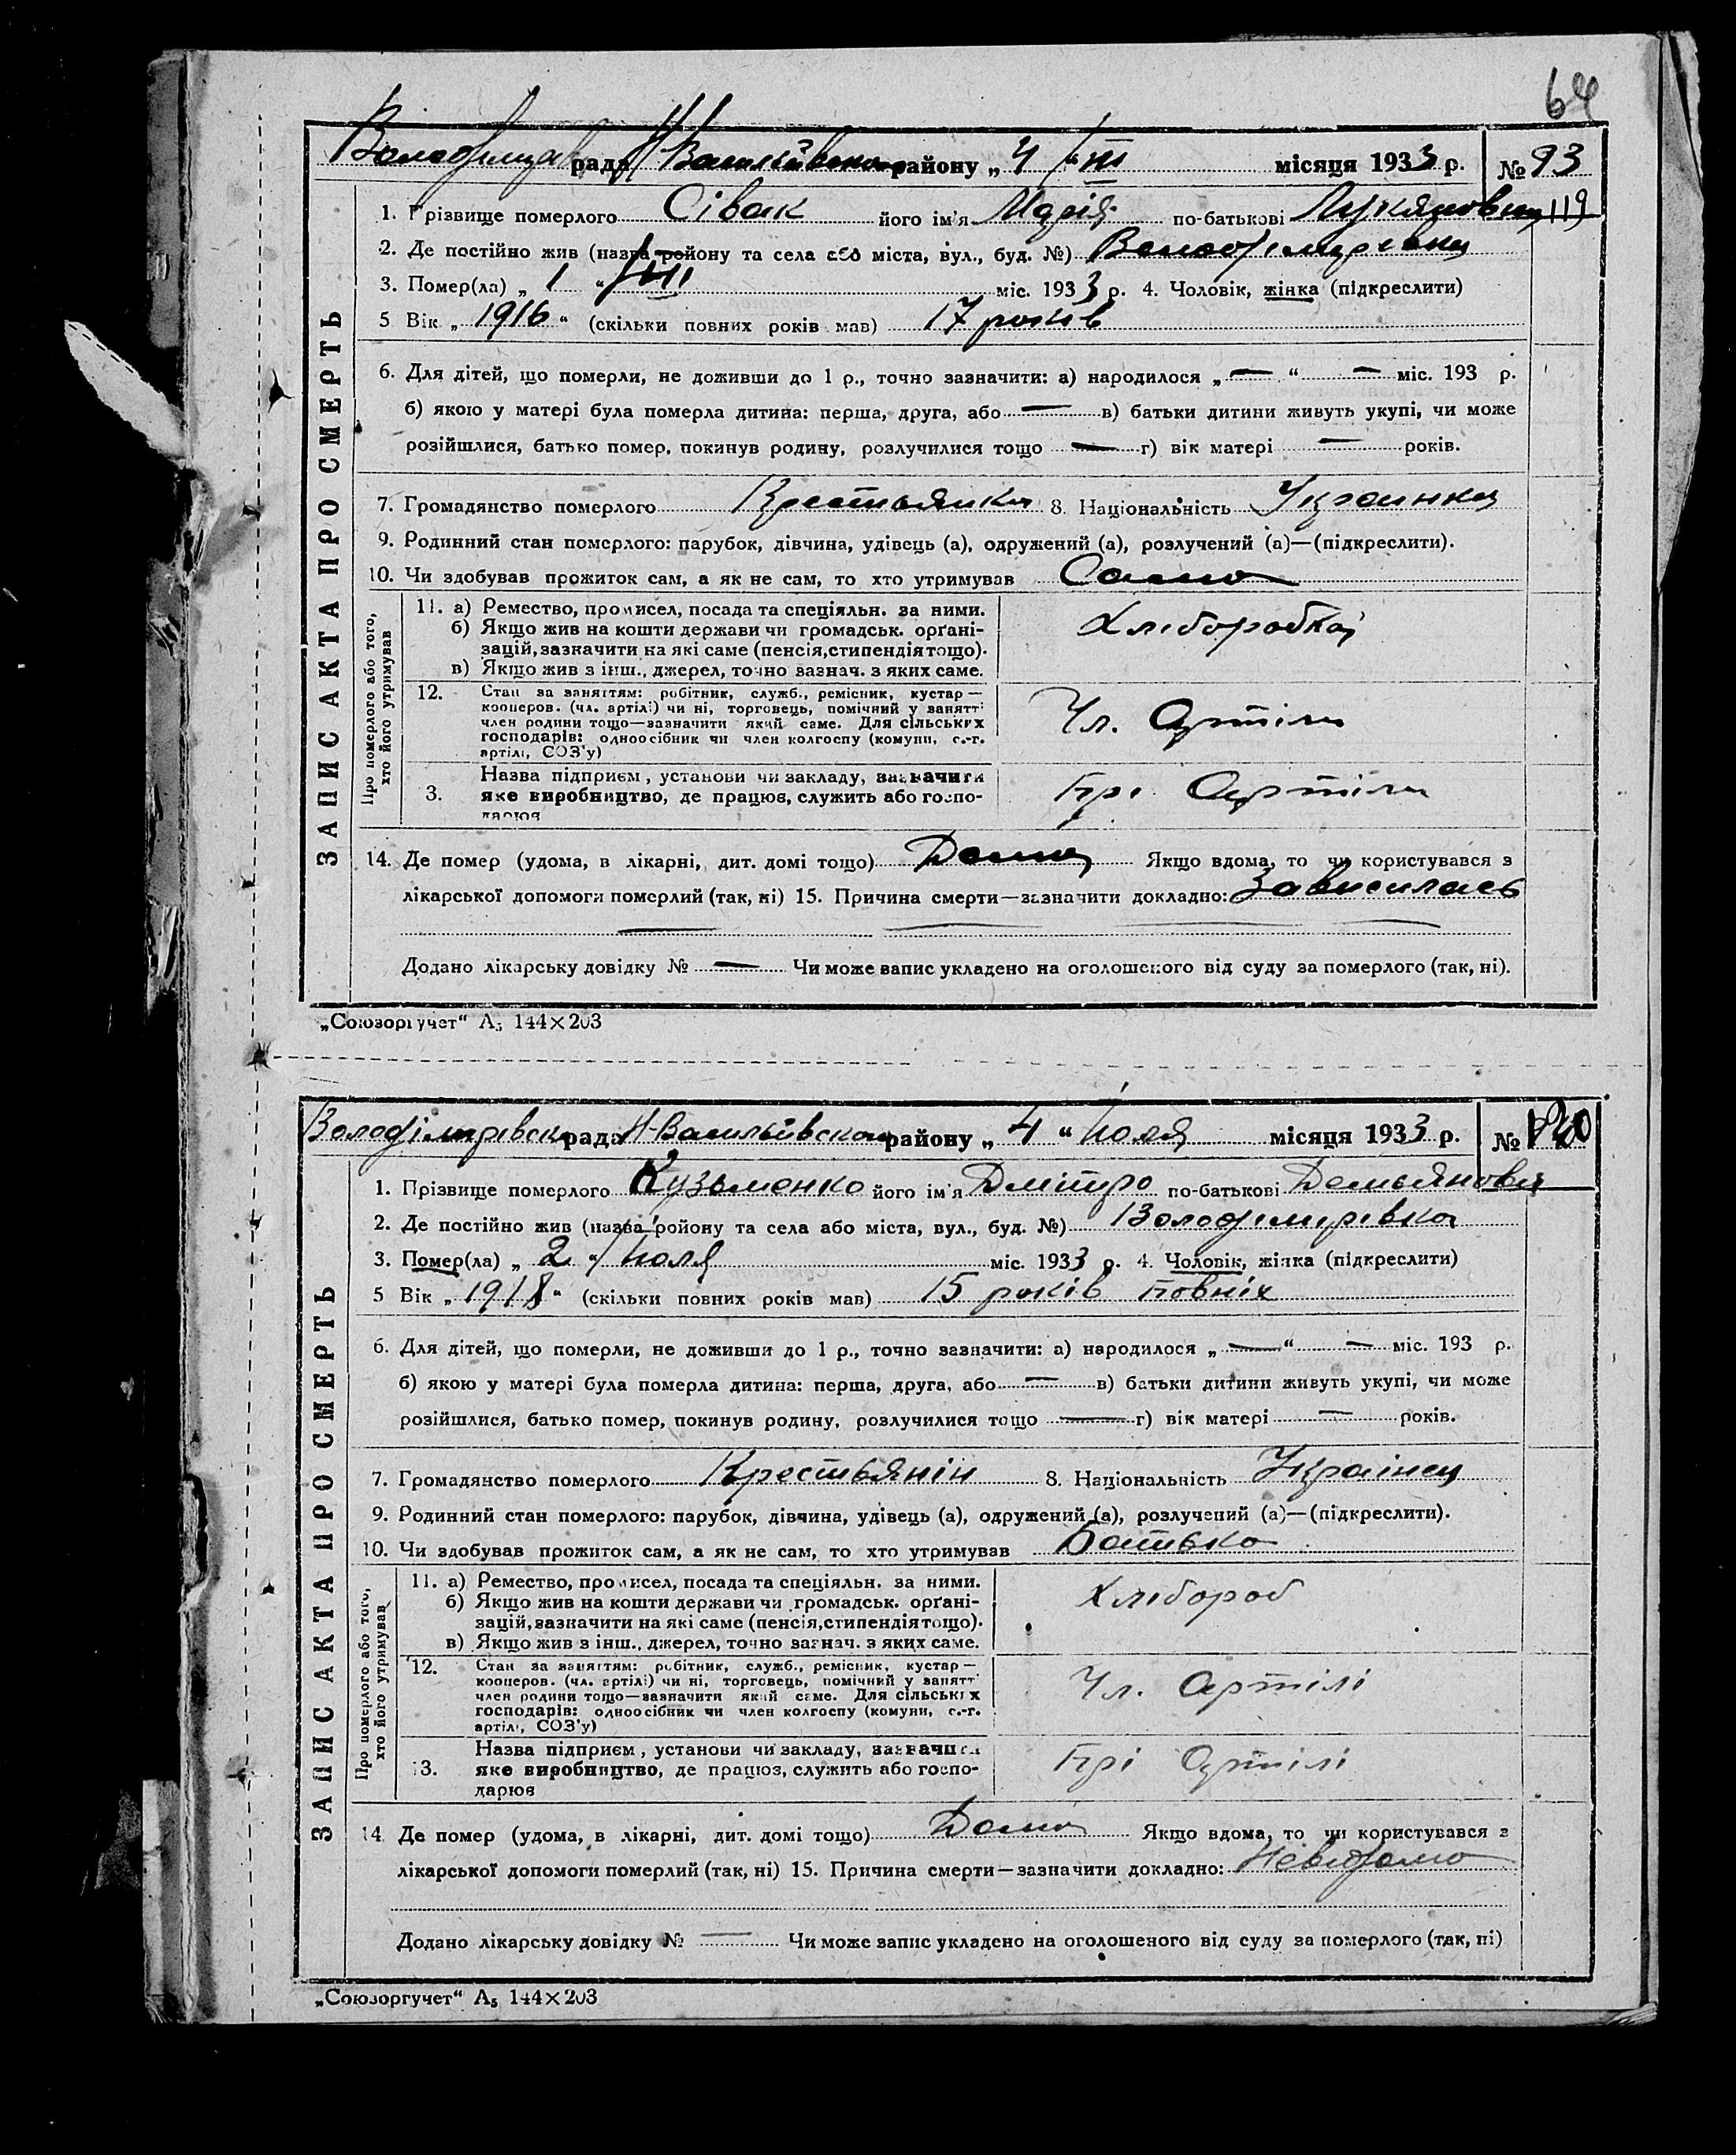 64
рада Н Васильївського району „ 4 “ III місяця 1933 р. № 93
1. Прізвище померлого Сівак його ім'я Марія по-батькові Лукяновна 119
2. Де постійно жив (назва ройону та села або міста, вул., буд. №) Володімирівка
3. Помер(ла) „ 1 “ III міс. 1933 р. 4. Чоловік, жінка (підкреслити)
5 Вік „ 1916 “ (скільки повних років мав) 17 років
6. Для дітей, що померли, не доживши до 1 р., точно зазначити: а) народилося „ — “ — міс. 193 р.
б) якою у матері була померла дитина: перша, друга, або — в) батьки дитини живуть укупі, чи може
розійшлися, батько помер, покинув родину, розлучилися тощо — г) вік матері — років.
7. Громадянство померлого Крестьянка 8. Національність Украинка
9. Родинний стан померлого: парубок, дівчина, удівець (а), одружений (а), розлучений (а)—(підкреслити).
10. Чи здобував прожиток сам, а як не сам, то хто утримував Сама
ЗАПИС АКТА ПРО СМЕРТЬ
Про померлого або того, хто його утримував
11. а) Ремество, промисел, посада та спеціяльн. за ними.
б) Якщо жив на кошти держави чи громадськ. орґані-
зацій, зазначити на які саме (пенсія, стипендія тощо).
в) Якщо жив з інш., джерел, точно зазнач. з яких саме.
Хлеборобка
12. Стан за заняттям: робітник, служб., ремісник, кустар—
кооперов. (чл. артілі) чи ні, торговець, помічний у занятті
член родини тощо—зазначити який саме. Для сільських
господарів: одноосібник чи член колгоспу (комуни, с.-г.
артілі, СОЗ'у)
Чл. Артіли
3. Назва підприєм, установи чи закладу, зазначити
яке виробництво, де працює, служить або госпо-
дарює
Прі Артіли
14. Де помер (удома, в лікарні, дит. домі тощо) Дома Якщо вдома, то чи користувався з
лікарської допомоги померлий (так, ні) 15. Причина смерти—зазначити докладно: Зависилась
Додано лікарську довідку № — Чи може запис укладено на оголошеного від суду за померлого (так, ні).
„Союзоргучет“ А5 144×203
Володімирівська рада Н-Васильївского району „ 4 “ Іюля місяця 1933 р. № 120
1. Прізвище померлого Кузьменко його ім'я Дмітро по-батькові Демьянови
2. Де постійно жив (назва ройону та села або міста, вул., буд. №) Володимирівка
3. Помер(ла) „ 2 “ Іюля міс. 1933 р. 4. Чоловік, жінка (підкреслити)
5 Вік „ 1918 “ (скільки повних років мав) 15 років повніх
6. Для дітей, що померли, не доживши до 1 р., точно зазначити: а) народилося „ — “ — міс. 193 р.
б) якою у матері була померла дитина: перша, друга, або — в) батьки дитини живуть укупі, чи може
розійшлися, батько помер, покинув родину, розлучилися тощо — г) вік матері — років.
7. Громадянство померлого Крестьянін 8. Національність Українец
9. Родинний стан померлого: парубок, дівчина, удівець (а), одружений (а), розлучений (а)—(підкреслити).
10. Чи здобував прожиток сам, а як не сам, то хто утримував Батько
ЗАПИС АКТА ПРО СМЕРТЬ
Про померлого або того, хто його утримував
11. а) Ремество, промисел, посада та спеціяльн. за ними.
б) Якщо жив на кошти держави чи громадськ. орґані-
зацій, зазначити на які саме (пенсія, стипендія тощо).
в) Якщо жив з інш., джерел, точно зазнач. з яких саме.
Хлібороб
12. Стан за заняттям: робітник, служб., ремісник, кустар—
кооперов. (чл. артілі) чи ні, торговець, помічний у занятті
член родини тощо—зазначити який саме. Для сільських
господарів: одноосібник чи член колгоспу (комуни, с.-г.
артілі, СОЗ'у)
Чл. Артілі
3. Назва підприєм, установи чи закладу, зазначити
яке виробництво, де працює, служить або госпо-
дарює
Прі Артілі
14 Де помер (удома, в лікарні, дит. домі тощо) Дома Якщо вдома, то чи користувався з
лікарської допомоги померлий (так, ні) 15. Причина смерти—зазначити докладно: Невідомо
Додано лікарську довідку № — Чи може запис укладено на оголошеного від суду за померлого (так, ні)
„Союзоргучет“ А5 144×203